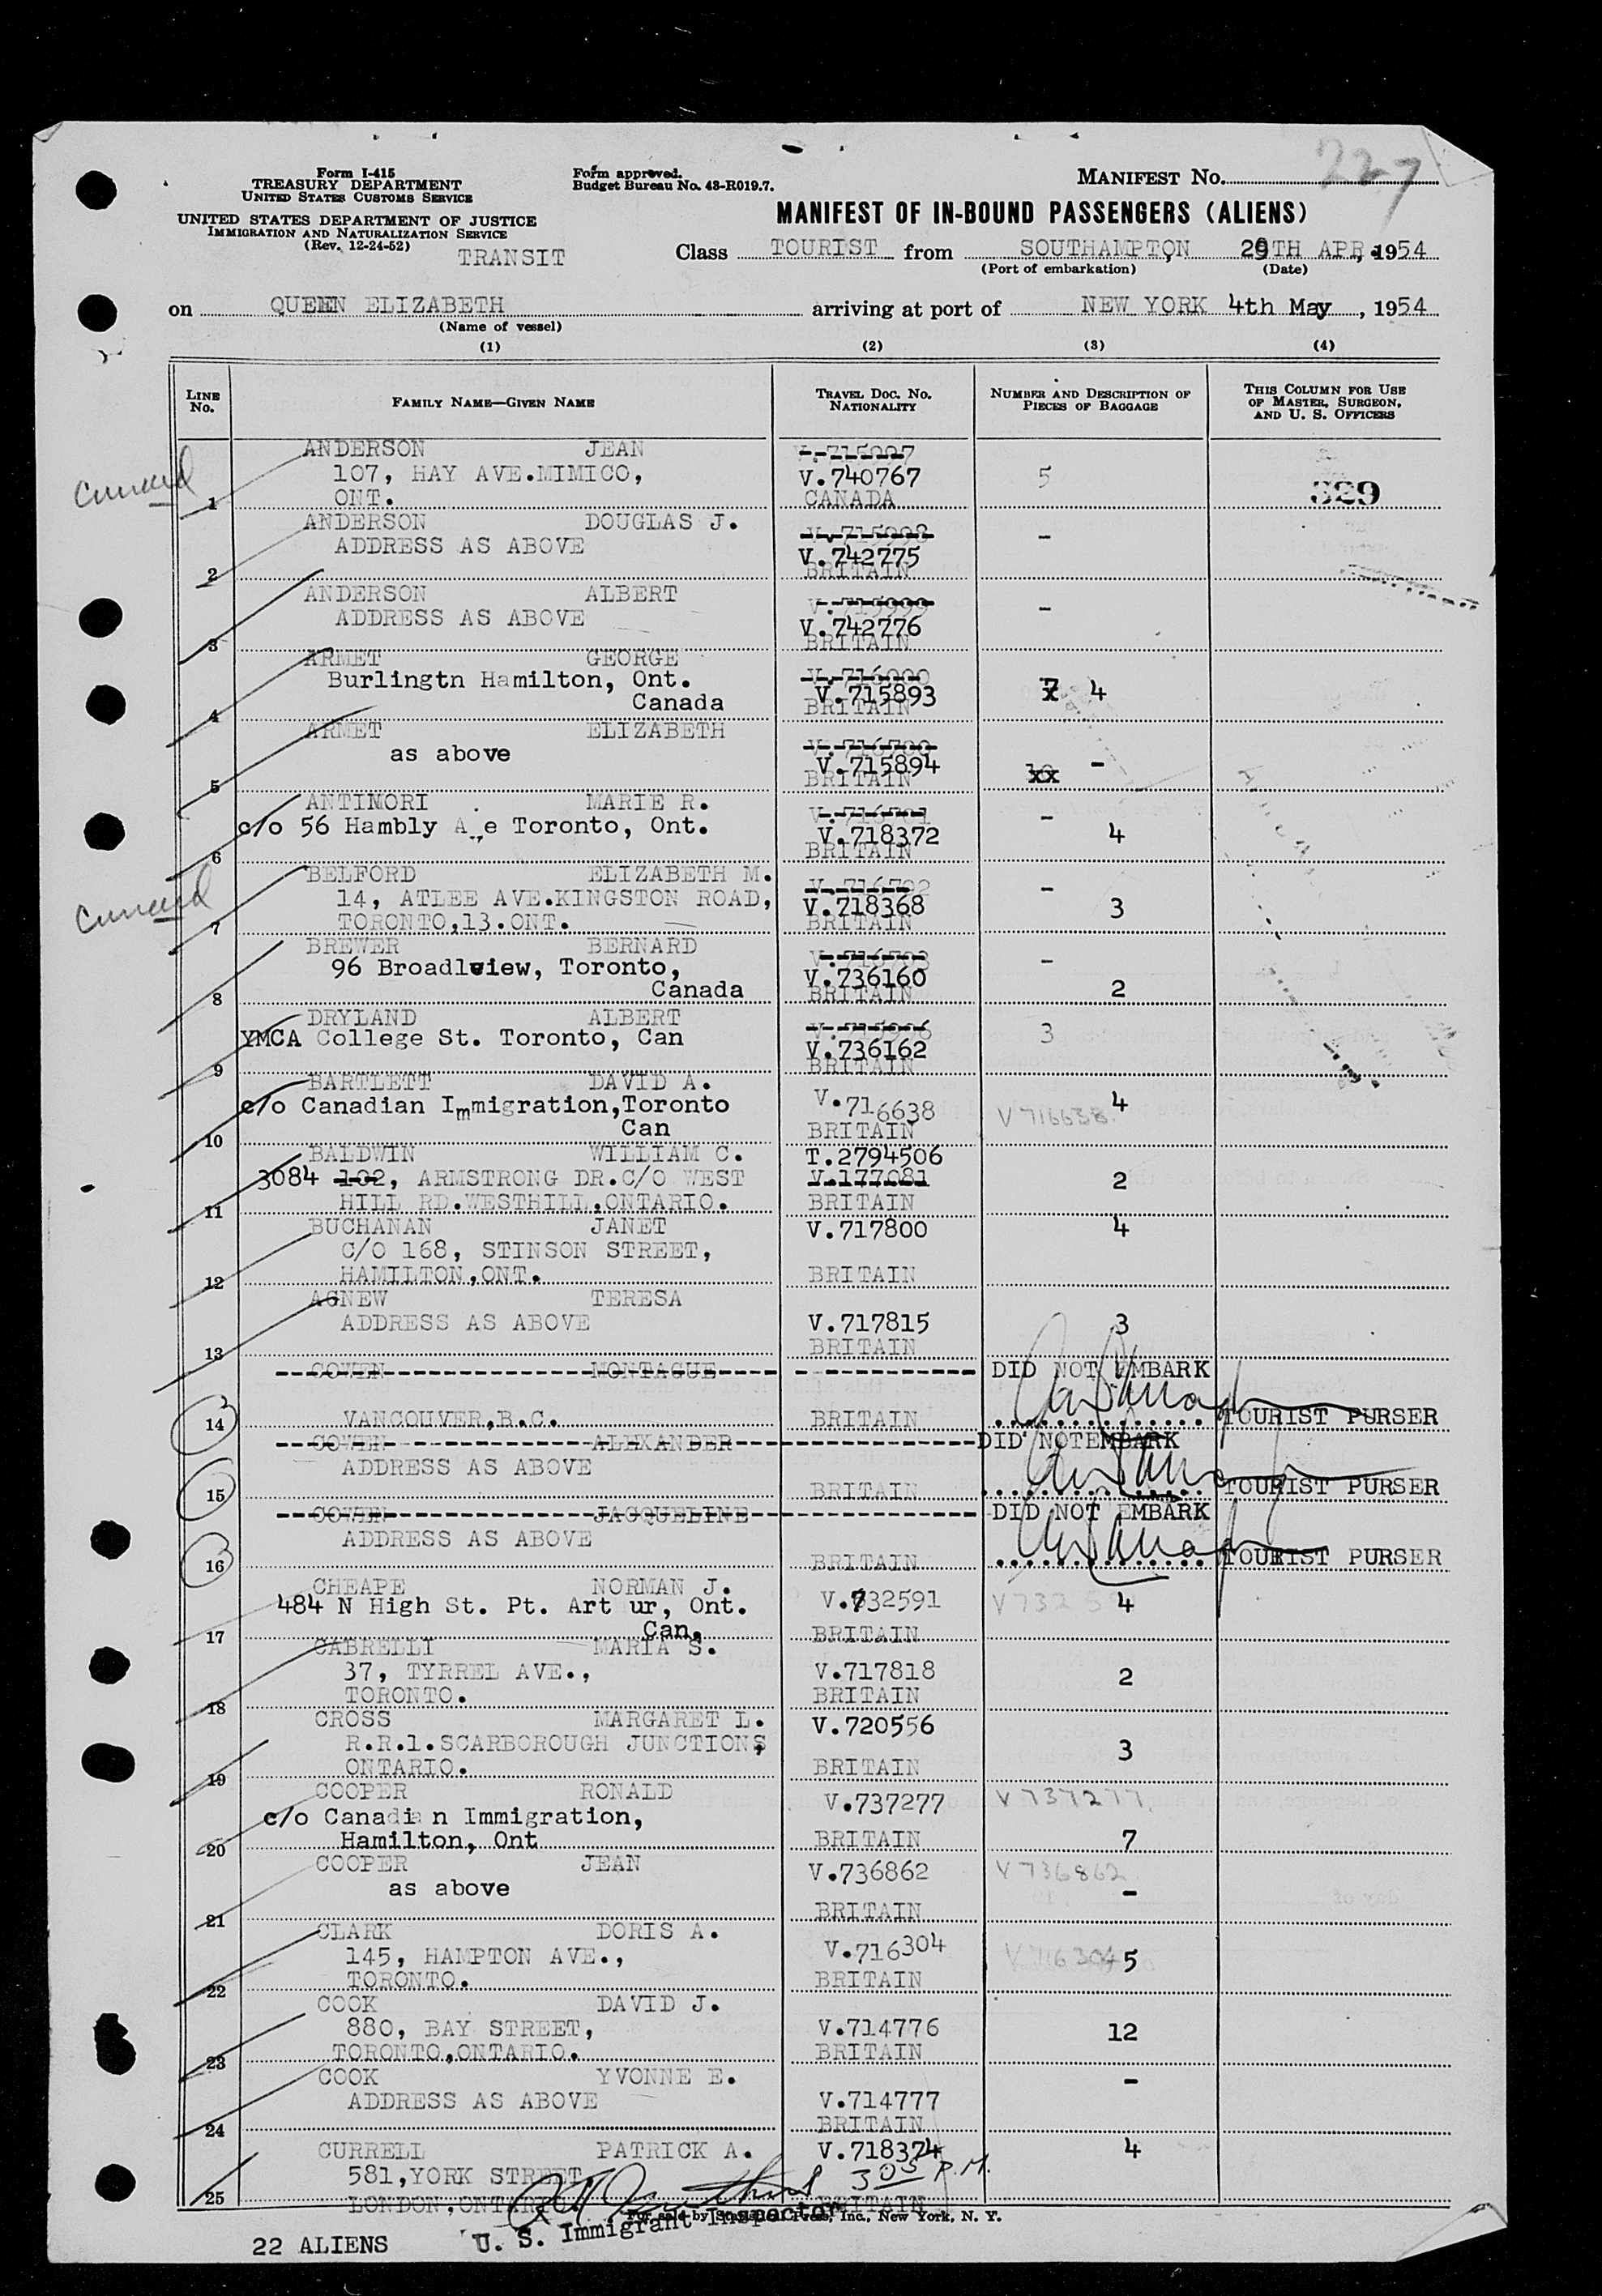 Form I-415
TREASURY DEPARTMENT
UNITED STATES CUSTOMS SERVICE
UNITED STATES DEPARTMENT OF JUSTICE
IMMIGRATION AND NATURALIZATION SERVICE
(Rev. 12-24-52)
TRANSIT
Form approved.
Budget Bureau No. 43-R019.7.
MANIFEST No. 227
MANIFEST OF IN-BOUND PASSENGERS (ALIENS)
Class TOURIST from SOUTHAMPTON, 29TH APR, 1954
(Port of embarkation) (Date)
on QUEEN ELIZABETH arriving at port of NEW YORK 4th May, 1954
(Name of vessel)
(1) (2) (3) (4)
LINE No. FAMILY NAME—GIVEN NAME TRAVEL DOC. NO. NATIONALITY NUMBER AND DESCRIPTION OF PIECES OF BAGGAGE THIS COLUMN FOR USE OF MASTER, SURGEON, AND U. S. OFFICERS
ANDERSON JEAN V.715997
Cunard 107, HAY AVE.MIMICO, V.740767 5 329
1 ONT. CANADA
ANDERSON DOUGLAS J. V.715998 -
ADDRESS AS ABOVE V.742775
2 BRITAIN
ANDERSON ALBERT V.715999 -
ADDRESS AS ABOVE V.742776
3 BRITAIN
ARMET GEORGE V.716000
Burlingtn Hamilton, Ont. V.715893 7 4
4 Canada BRITAIN
ARMET ELIZABETH V.716700
as above V.715894 -
5 BRITAIN xx
ANTIMORI MARIE R. V.716701 -
c/o 56 Hambly A e Toronto, Ont. V.718372 4
6 BRITAIN
BELFORD ELIZABETH M. V.716702 -
Cunard 14, ATLEE AVE.KINGSTON ROAD, V.718368 3
7 TORONTO,13.ONT. BRITAIN
BREWER BERNARD V.716703 -
96 Broadlview, Toronto, V.736160
8 Canada BRITAIN 2
DRYLAND ALBERT V.715996 3
YMCA College St. Toronto, Can V.736162
9 BRITAIN
BARTLETT DAVID A. V.716638 4
c/o Canadian Immigration,Toronto V716638
10 Can BRITAIN
BALDWIN WILLIAM C. T.2794506
3084 102, ARMSTRONG DR.C/O WEST V.177081 2
11 HILL RD.WESTHILL,ONTARIO. BRITAIN
BUCHANAN JANET V.717800 4
C/O 168, STINSON STREET,
12 HAMILTON,ONT. BRITAIN
AGNEW TERESA
ADDRESS AS ABOVE V.717815 3
13 BRITAIN
COWEN MONTAGUE DID NOT EMBARK
14 VANCOUVER,B.C. BRITAIN TOURIST PURSER
COWEN ALEXANDER DID NOTEMBARK
ADDRESS AS ABOVE
15 BRITAIN TOURIST PURSER
COWEN JACQUELINE DID NOT EMBARK
ADDRESS AS ABOVE
16 BRITAIN TOURIST PURSER
CHEAPE NORMAN J. V.732591 4
484 N High St. Pt. Art ur, Ont.
17 Can. BRITAIN
CABRELLI MARIA S.
37, TYRREL AVE., V.717818 2
18 TORONTO. BRITAIN
CROSS MARGARET L. V.720556
R.R.1.SCARBOROUGH JUNCTIONS, 3
19 ONTARIO. BRITAIN
COOPER RONALD V.737277 V737277
c/o Canadi n Immigration,
20 Hamilton, Ont BRITAIN 7
COOPER JEAN V.736862 V736862
as above -
21 BRITAIN
CLARK DORIS A.
145, HAMPTON AVE., V.716304 V716304 5
22 TORONTO. BRITAIN
COOK DAVID J.
880, BAY STREET, V.714776 12
23 TORONTO,ONTARIO. BRITAIN
COOK YVONNE E. -
ADDRESS AS ABOVE V.714777
24 BRITAIN
CURRELL PATRICK A. V.718374 4
581,YORK STREET, 305 P.M.
25 LONDON,ONTARIO. BRITAIN
For sale by Press, Inc., New York, N. Y.
22 ALIENS U. S. Immigrant Inspector